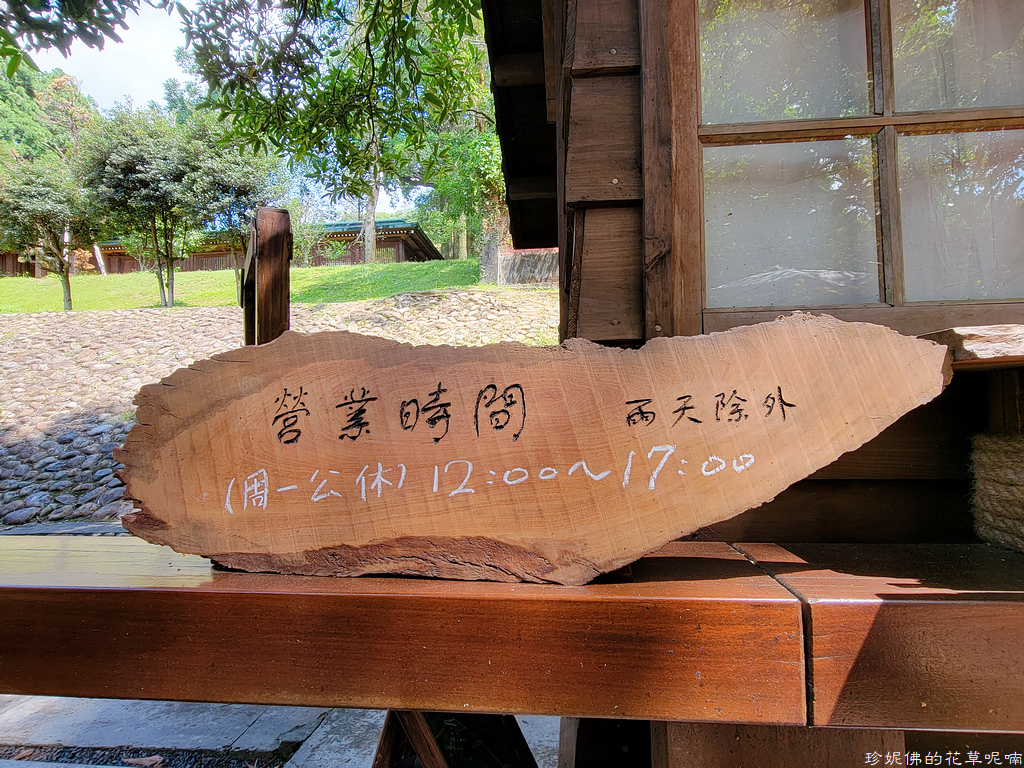 營業時間 雨天除外
(周一公休) 12:00~17:00
珍妮佛的花草呢喃